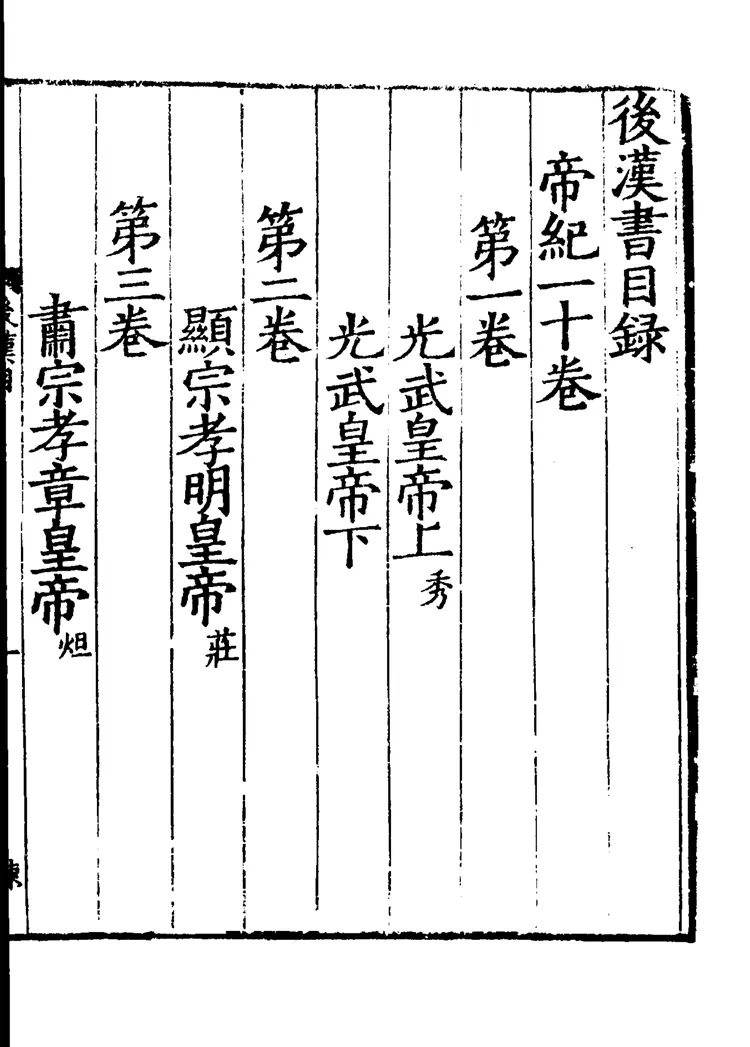 後漢書目錄
帝紀一十卷
第一卷
光武皇帝上 秀
光武皇帝下
第二卷
顯宗孝明皇帝 莊
第三卷
肅宗孝章皇帝 炟